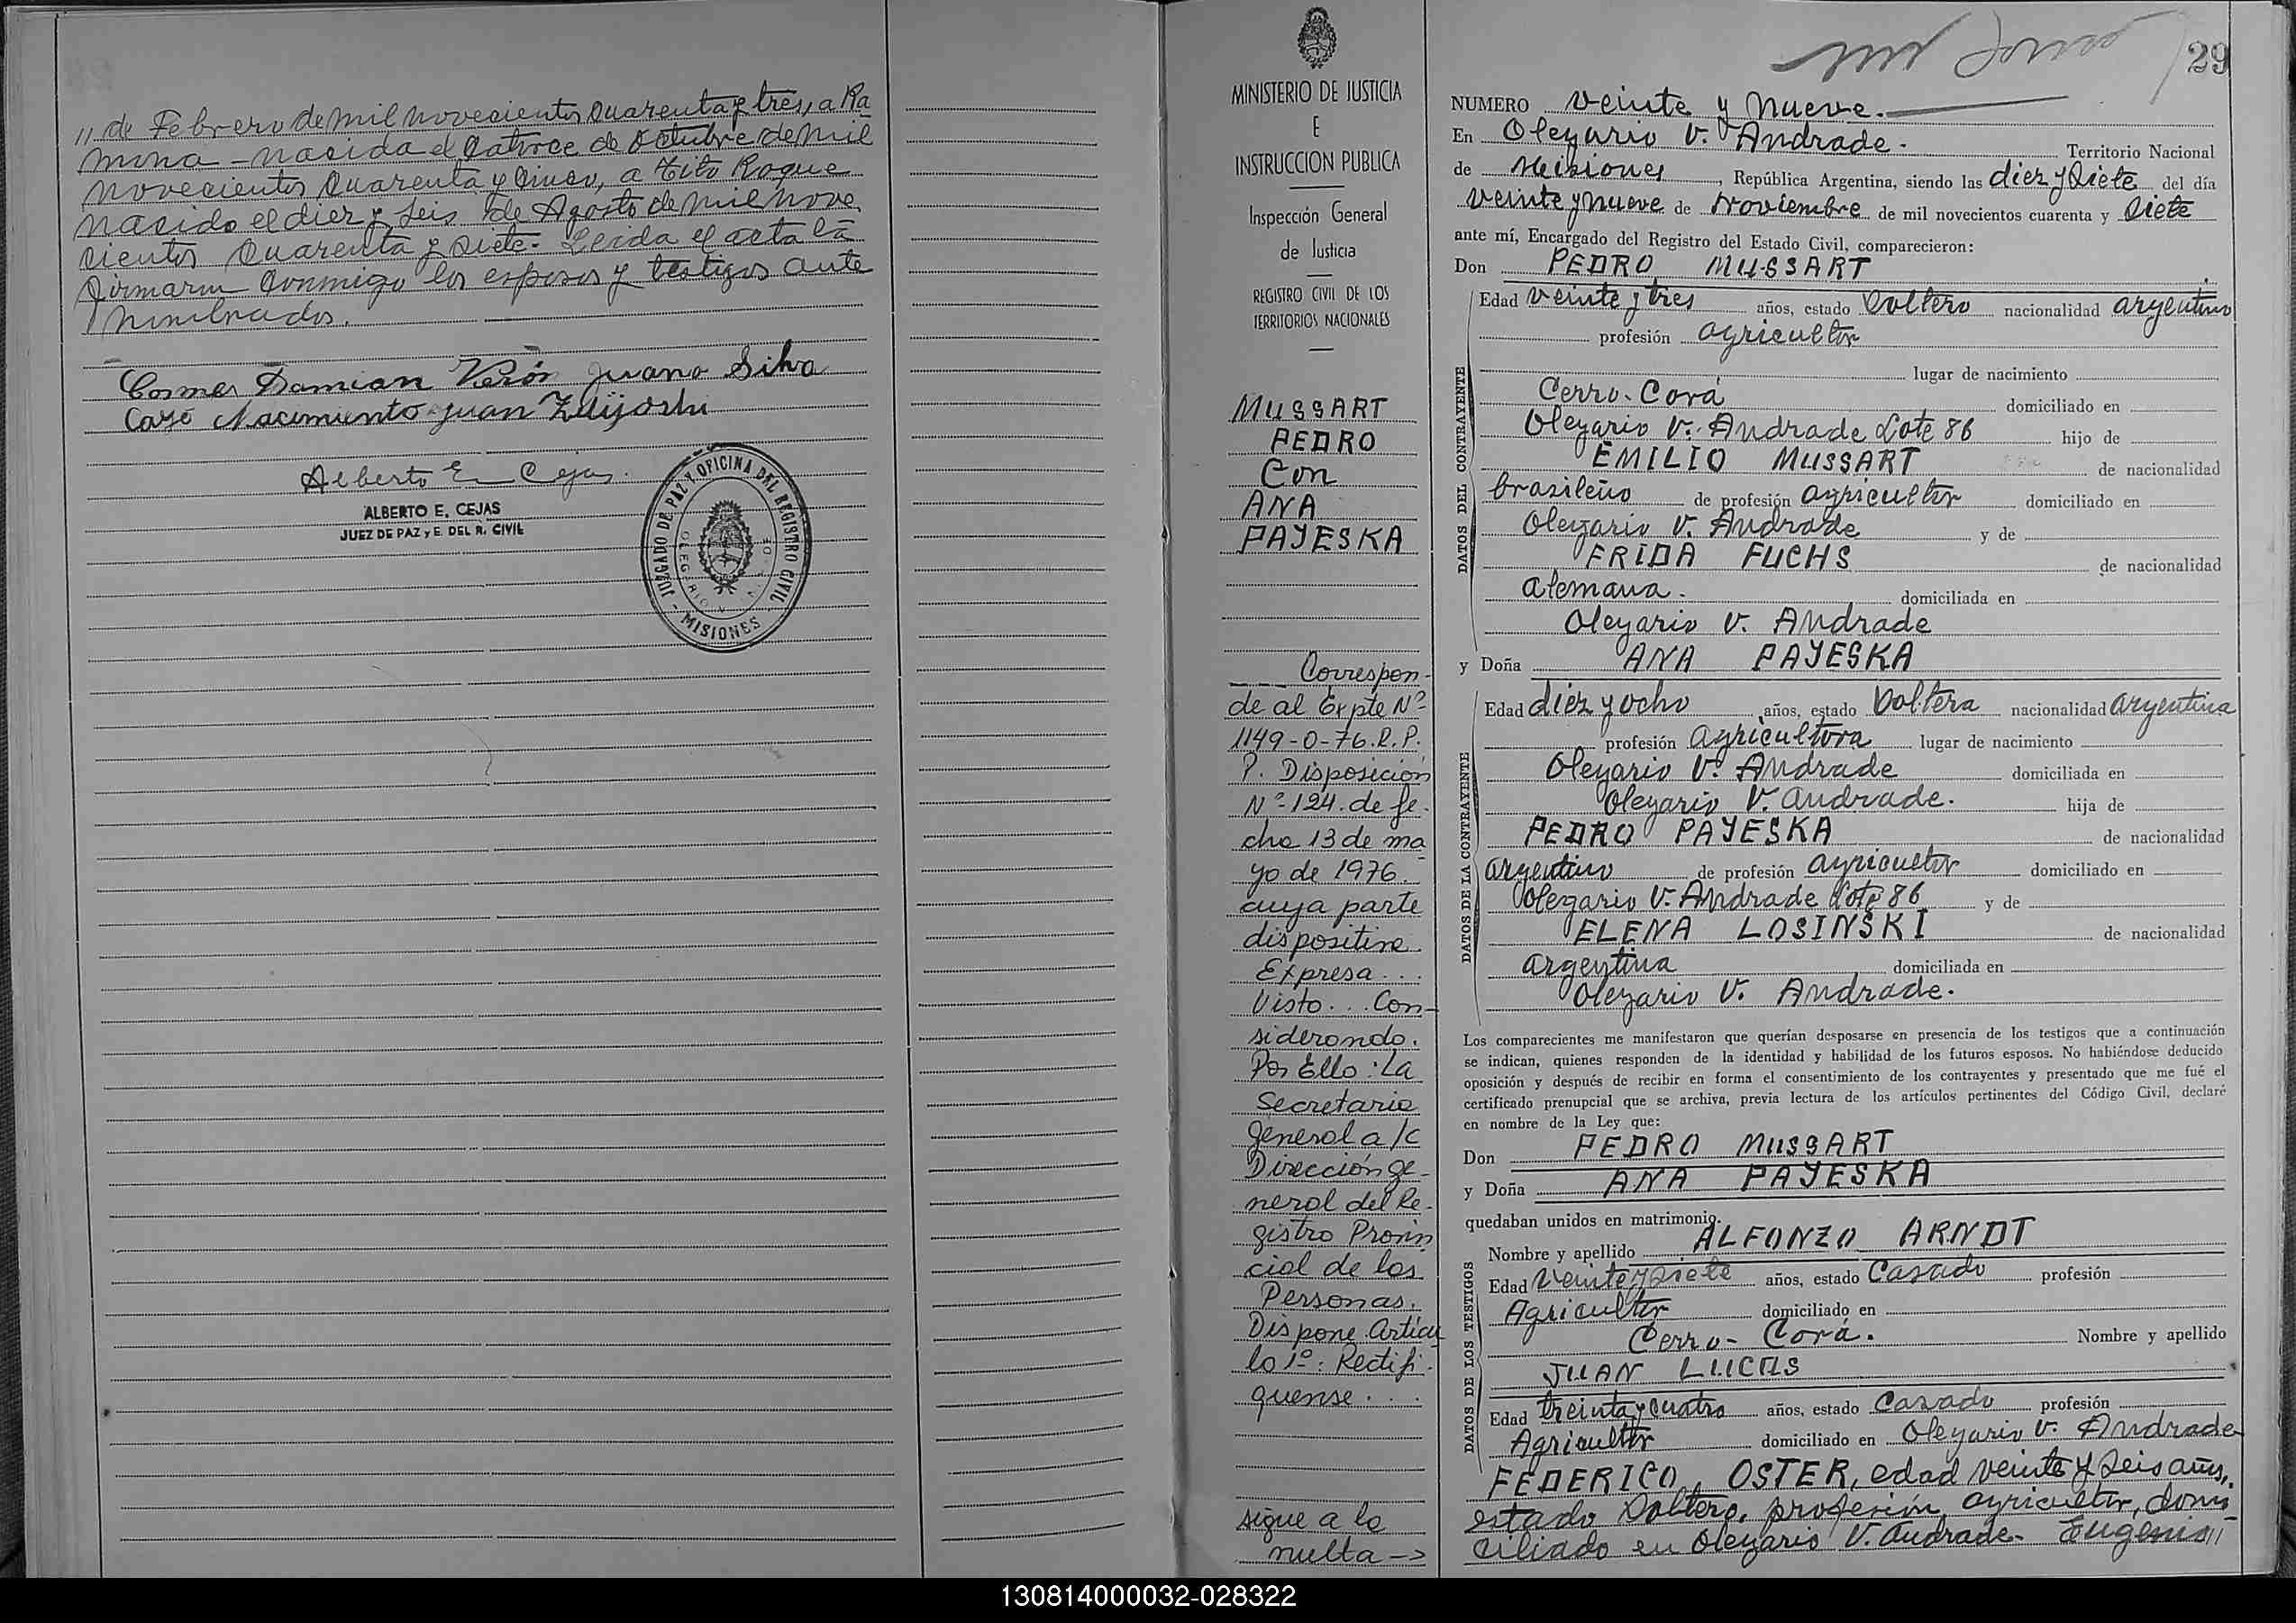 11 de Febrero de mil novecientos Quarenta y tres, a Ra
mona - nacida el Catorce de Octubre de mil
novecientos Quarenta y Cinco, a Tito Roque
nacido el diez y seis de Agosto de mil nove
cientos Quarenta y siete. Leida el acta la
firmaron Conmigo los esposos y testigos ante
nombrados.
Cosmer Damian Verón Juana Silva
José Nacimiento Juan
Alberto E. Cejas.
ALBERTO E. CEJAS
JUEZ DE PAZ y E. DEL R. CIVIL
JUZGADO DE PAZ Y OFICINA DEL REGISTRO CIVIL
- MISIONES -
MINISTERIO DE JUSTICIA
E
INSTRUCCION PUBLICA
Inspección General
de Justicia
REGISTRO CIVIL DE LOS
TERRITORIOS NACIONALES
MUSSART
PEDRO
Con
ANA
PAYESKA
Correspon-
de al Expte Nº
1149-0-76.R.P.
P. Disposición
Nº 124. de fe-
cha 13 de ma
yo de 1976.
cuya parte
dispositiva
Expresa...
Visto... Con-
siderando.
Por Ello: La
Secretaria
general a/c
Dirección ge-
neral del Re-
gistro Provin
cial de las
Personas.
Dispone Artícu
lo 1º: Rectifi-
quense...
sigue a la
vuelta ->
29
NUMERO veinte y nueve.
En Olegario V. Andrade. Territorio Nacional
de Misiones, República Argentina, siendo las diez y siete del día
veinte y nueve de Noviembre de mil novecientos cuarenta y siete
ante mí, Encargado del Registro del Estado Civil, comparecieron:
Don PEDRO MUSSART
DATOS DEL CONTRAYENTE
Edad veinte y tres años, estado soltero nacionalidad argentino
profesión agricultor
lugar de nacimiento
Cerro-Corá domiciliado en
Olegario V. Andrade Lote 86 hijo de
EMILIO MUSSART de nacionalidad
brasileño de profesión agricultor domiciliado en
Olegario V. Andrade y de
FRIDA FUCHS de nacionalidad
alemana. domiciliada en
Olegario V. Andrade
y Doña ANA PAYESKA
DATOS DE LA CONTRAYENTE
Edad diez y ocho años, estado soltera nacionalidad argentina
profesión agricultora lugar de nacimiento
Olegario V. Andrade domiciliada en
Olegario V. Andrade. hija de
PEDRO PAYESKA de nacionalidad
argentino de profesión agricultor domiciliado en
Olegario V. Andrade Lote 86 y de
ELENA LOSINSKI de nacionalidad
argentina domiciliada en
Olegario V. Andrade.
Los comparecientes me manifestaron que querían desposarse en presencia de los testigos que a continuación
se indican, quienes responden de la identidad y habilidad de los futuros esposos. No habiéndose deducido
oposición y después de recibir en forma el consentimiento de los contrayentes y presentado que me fué el
certificado prenupcial que se archiva, previa lectura de los artículos pertinentes del Código Civil, declaré
en nombre de la Ley que:
Don PEDRO MUSSART
y Doña ANA PAYESKA
quedaban unidos en matrimonio.
DATOS DE LOS TESTIGOS
Nombre y apellido ALFONZO ARNDT
Edad veinte y siete años, estado Casado profesión
Agricultor domiciliado en
Cerro-Corá. Nombre y apellido
JUAN LUCAS
Edad treinta y cuatro años, estado Casado profesión
Agricultor domiciliado en Olegario V. Andrade
FEDERICO OSTER, edad veinte y seis años,
estado soltero, profesión agricultor, domi
ciliado en Olegario V. Andrade. Eugenio//
130814000032-028322